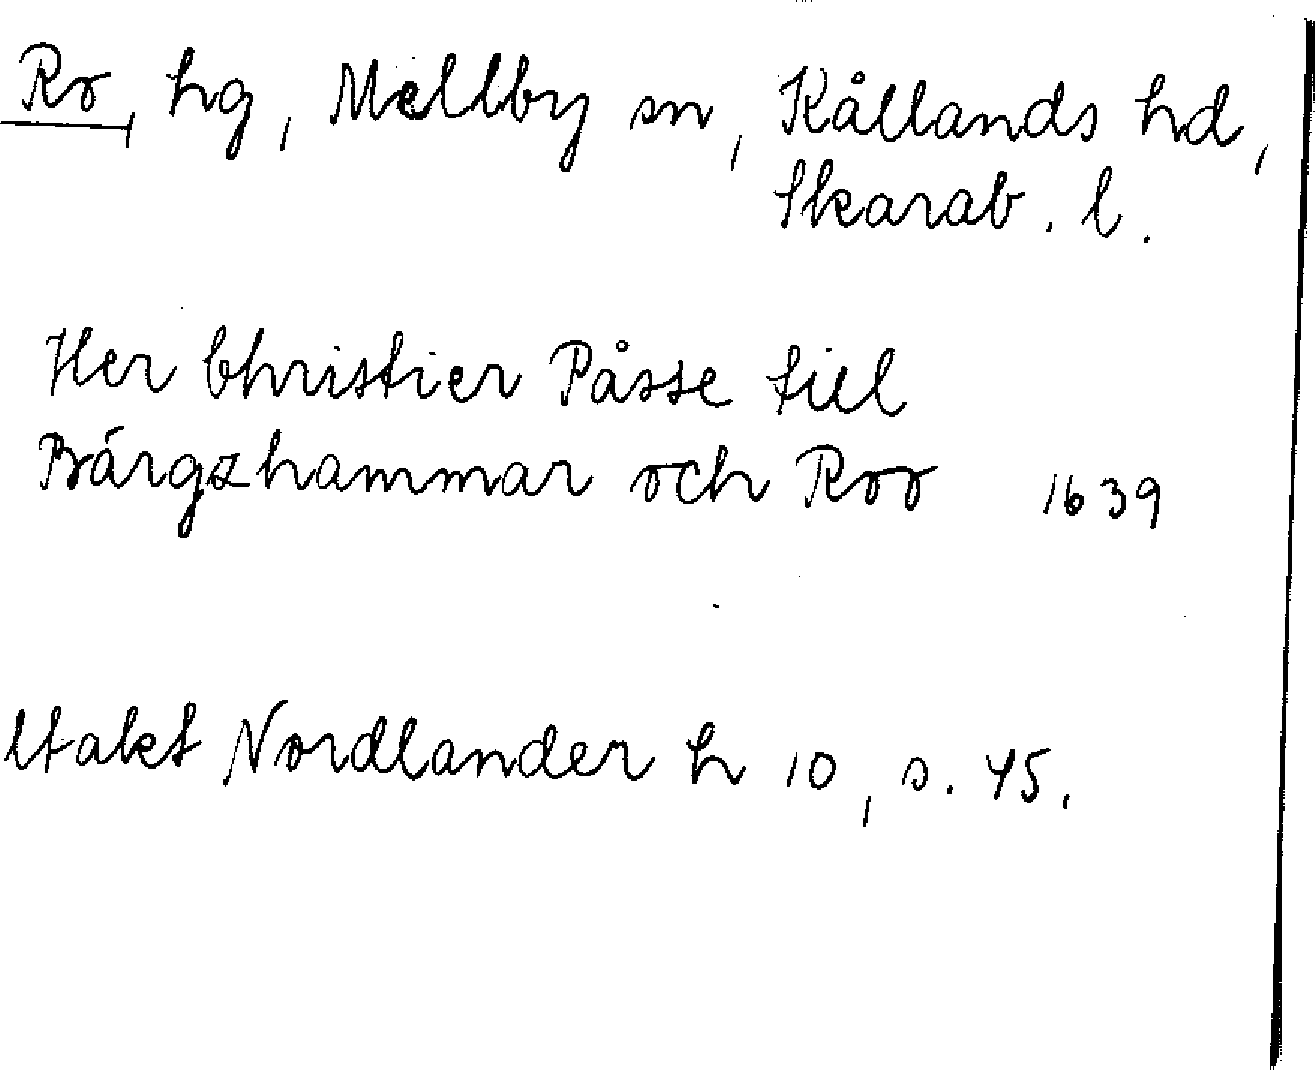 Ro, hg, Mellby sn, Kållands hd,
Skarab. l.
Her Christier Påsse till
Bärgzhammar och Roo 1639
Utakt Nordlander h 10, s. 45.